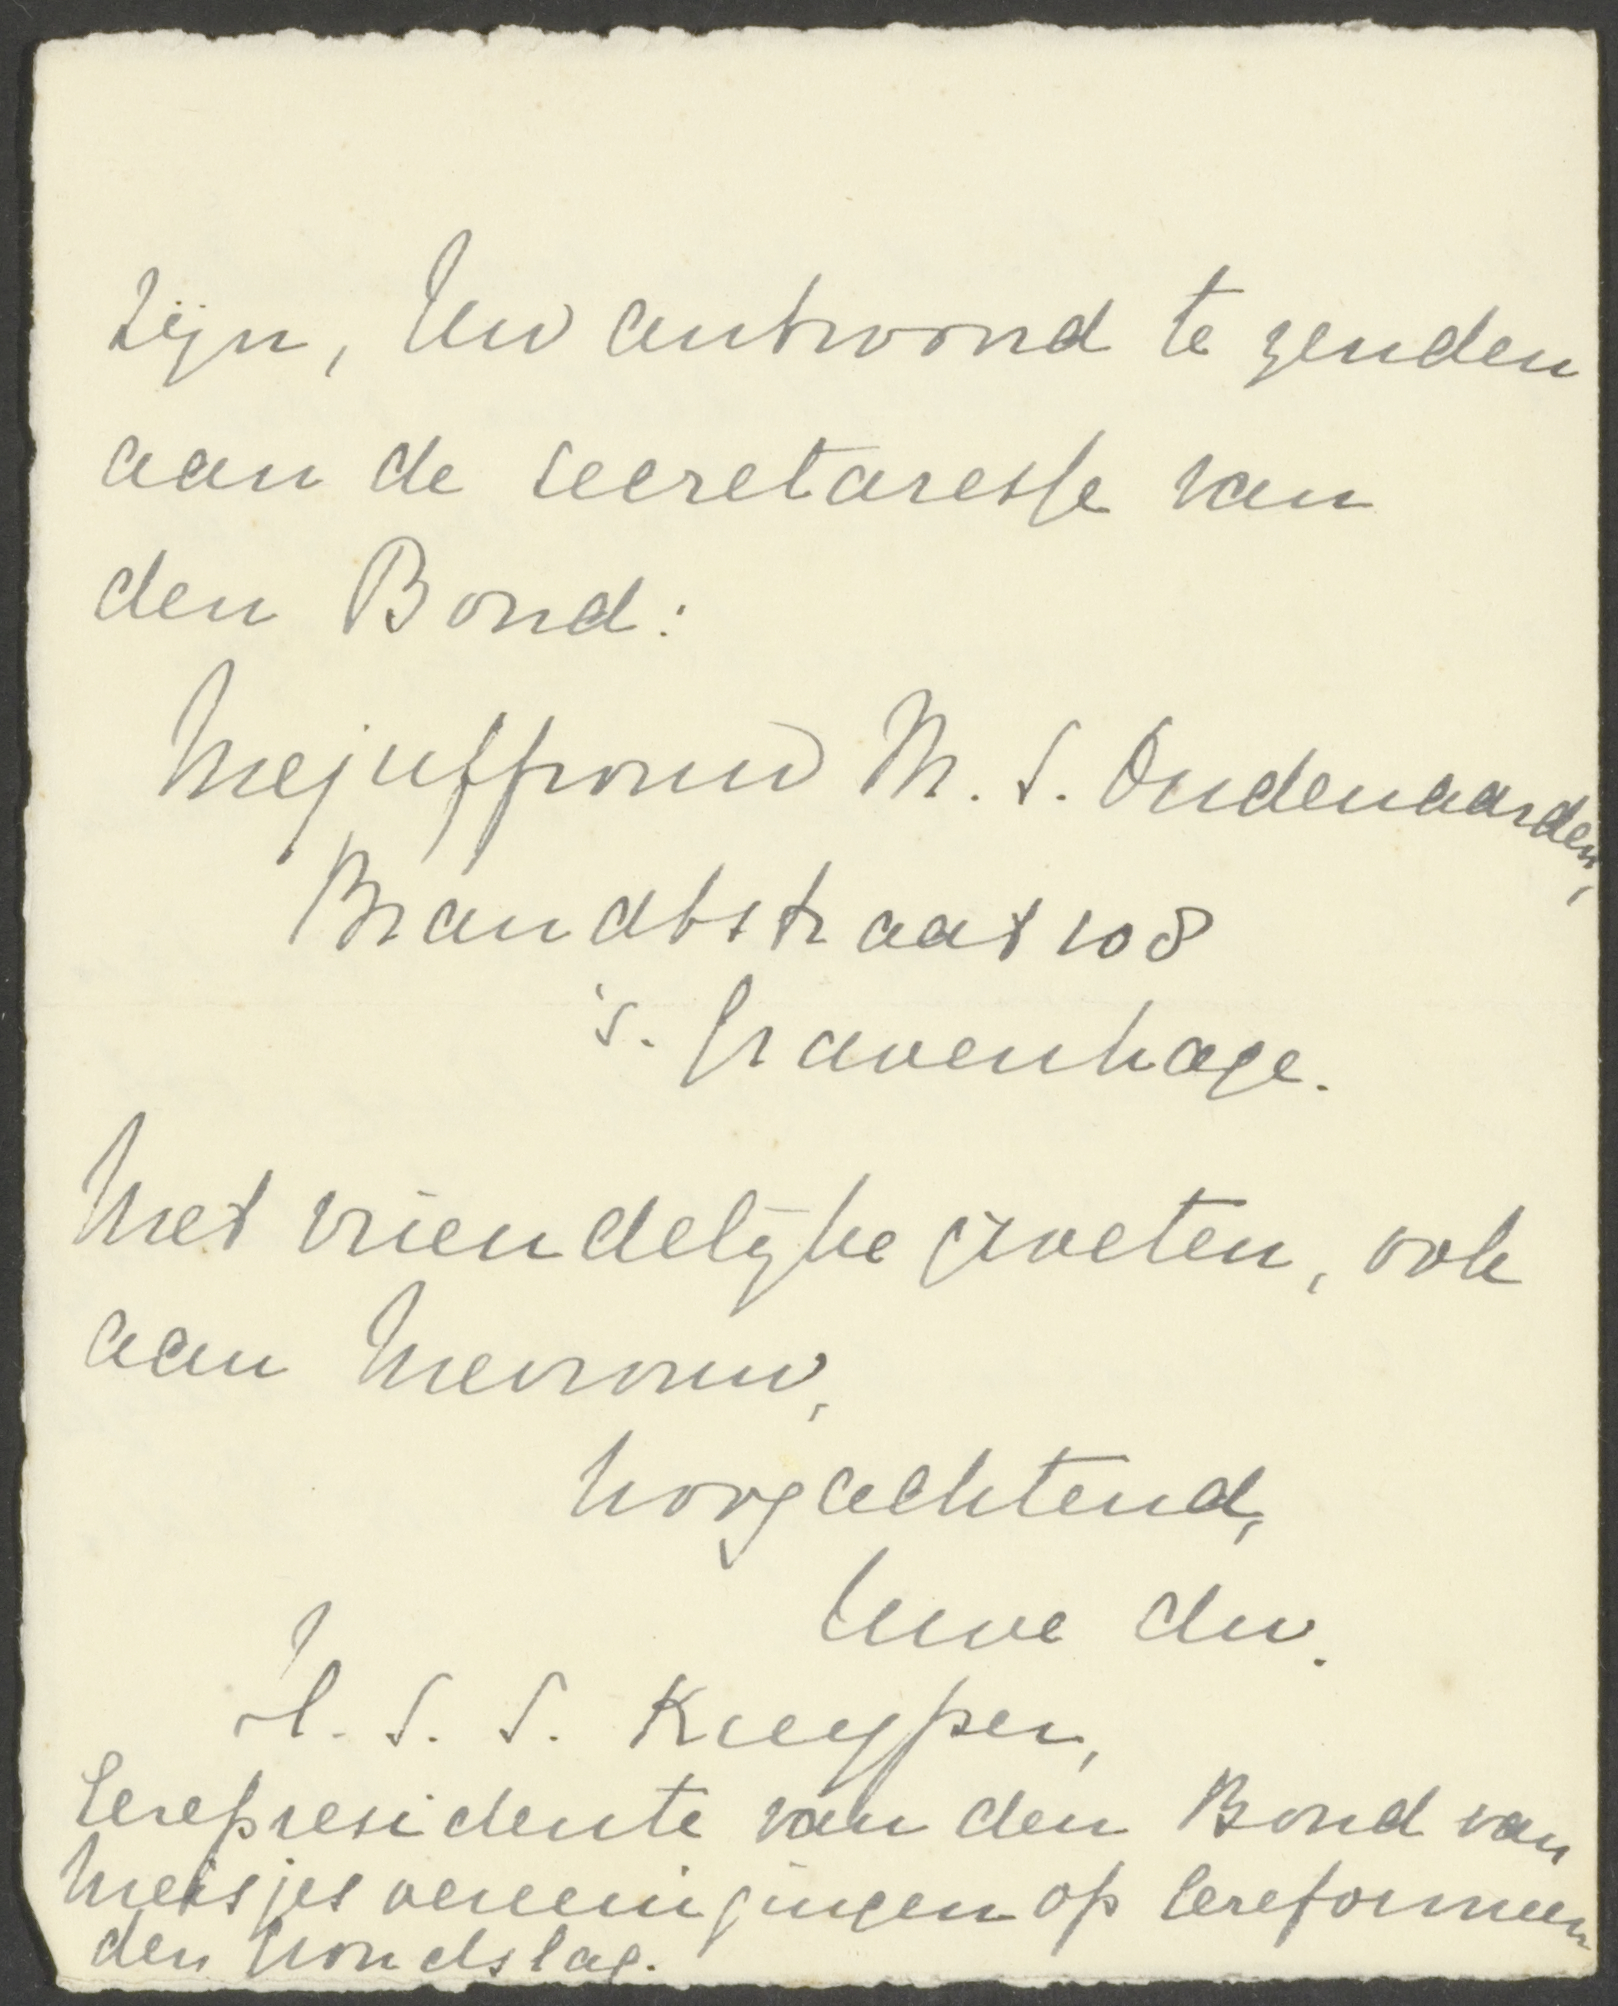 zijn, Uw antwoord te zenden
aan de secretaresse van
den Bond:
Mejuffrouw M. S. Oudenaarden,
Brandtstraat 108
's. Gravenhage.
Met vriendelijke groeten, ook
aan Mevrouw,
hoogachtend,
Uwe dw.
H. S. S. Kuyper,
Eerepresidente van den Bond van
Meisjesvereenigingen op Gereformeer
den Grondslag.